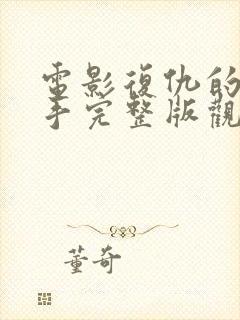 電影復仇的
手完整版觀
董奇